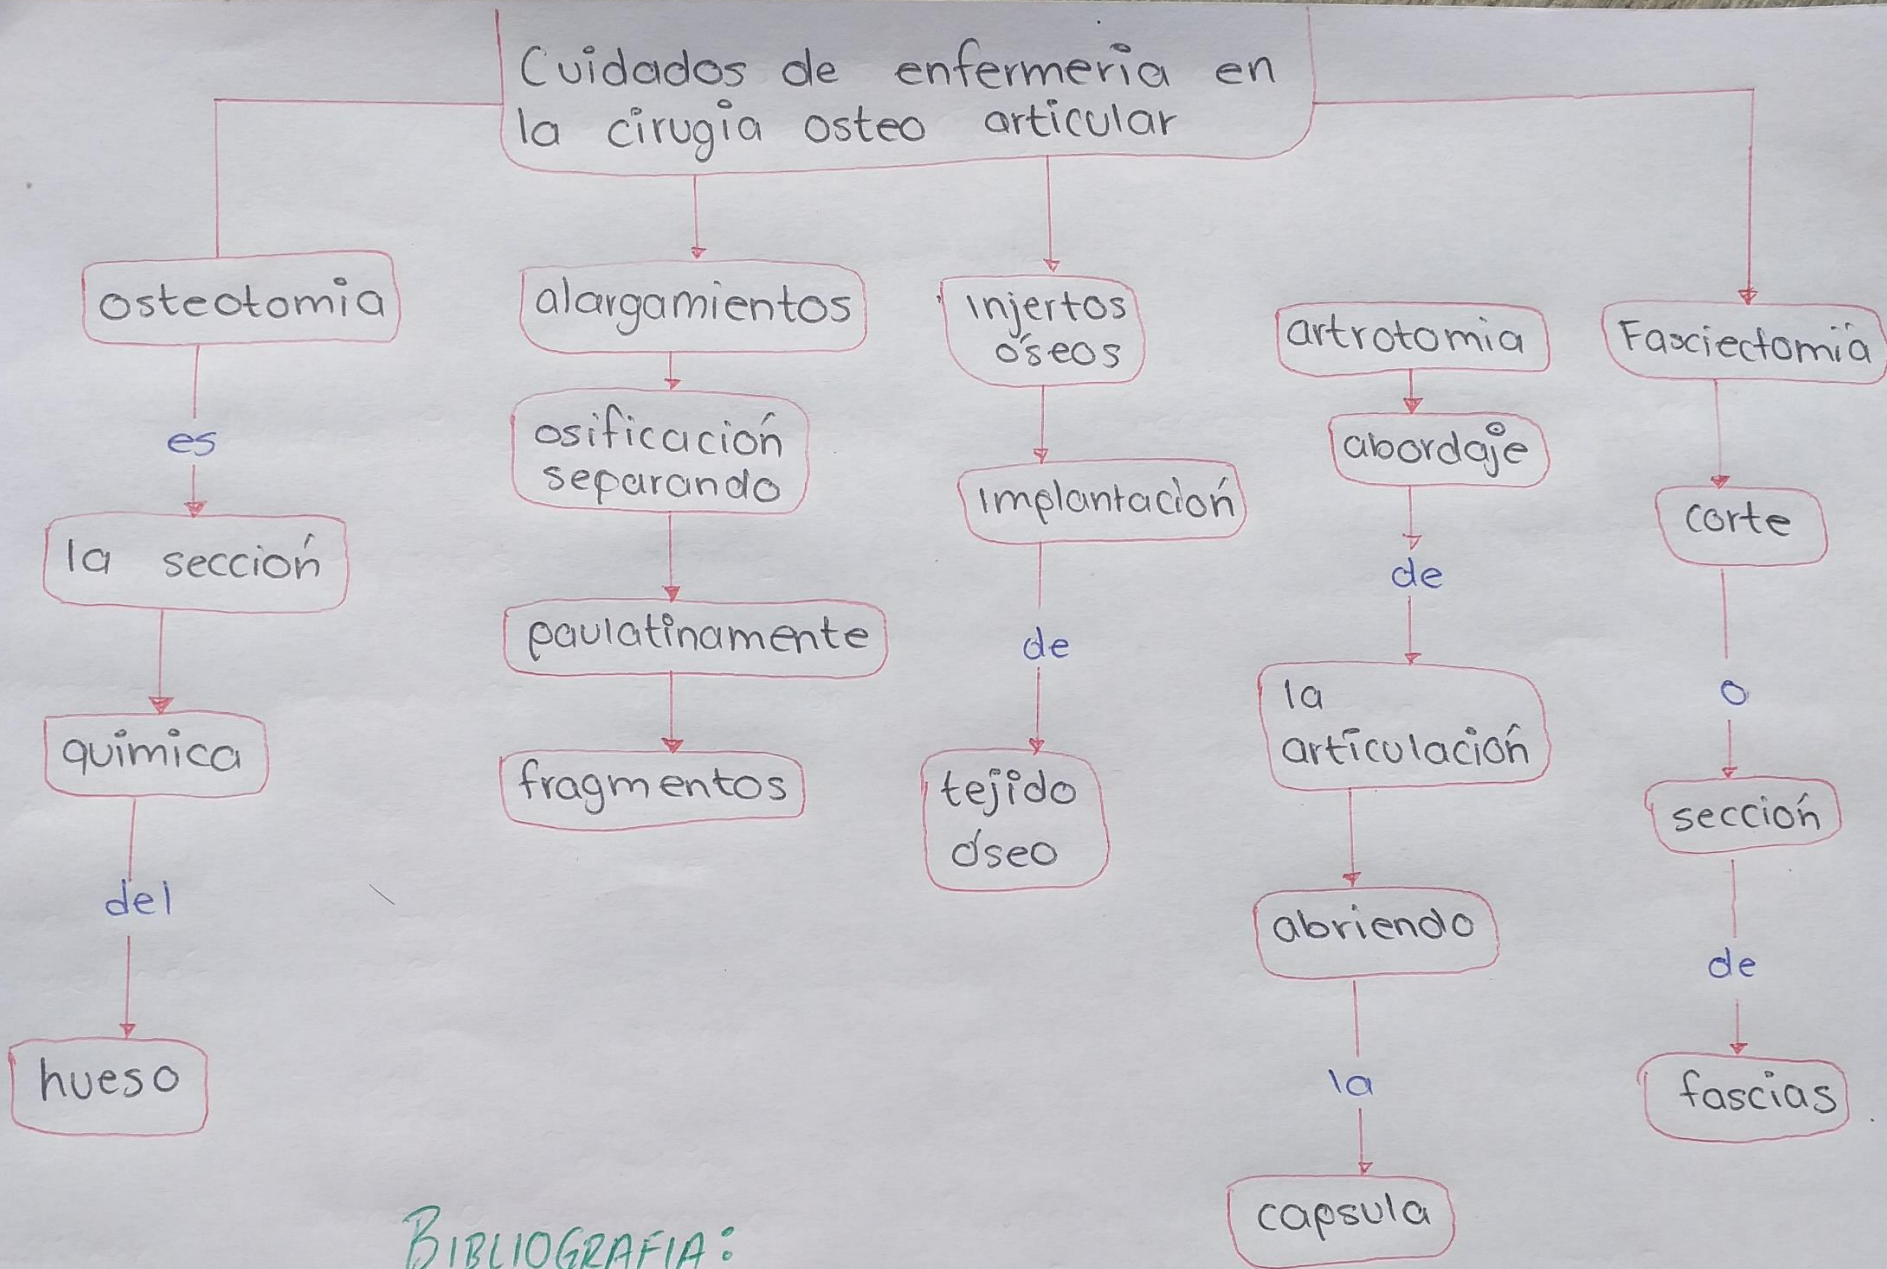 Cuidados de enfermeria en
la cirugia osteo articular
osteotomia
es
la sección
quimica
del
hueso
alargamientos
osificación
separando
paulatinamente
fragmentos
injertos
óseos
implantación
de
tejido
óseo
artrotomia
abordaje
de
la
articulación
abriendo
la
capsula
Fasciectomiá
corte
o
sección
de
fascias
BIBLIOGRAFIA: